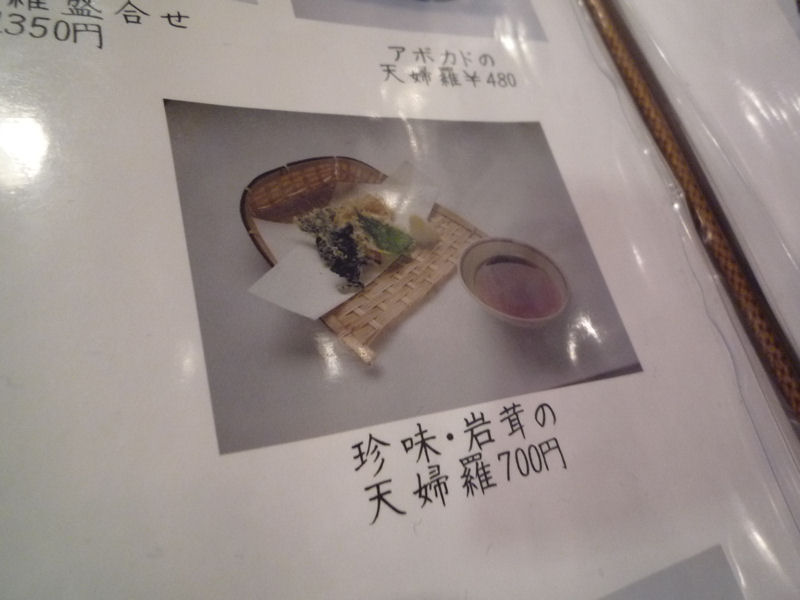 羅盛合せ
1350円
アボカドの
天婦羅¥480
珍味・岩茸の
天婦羅700円